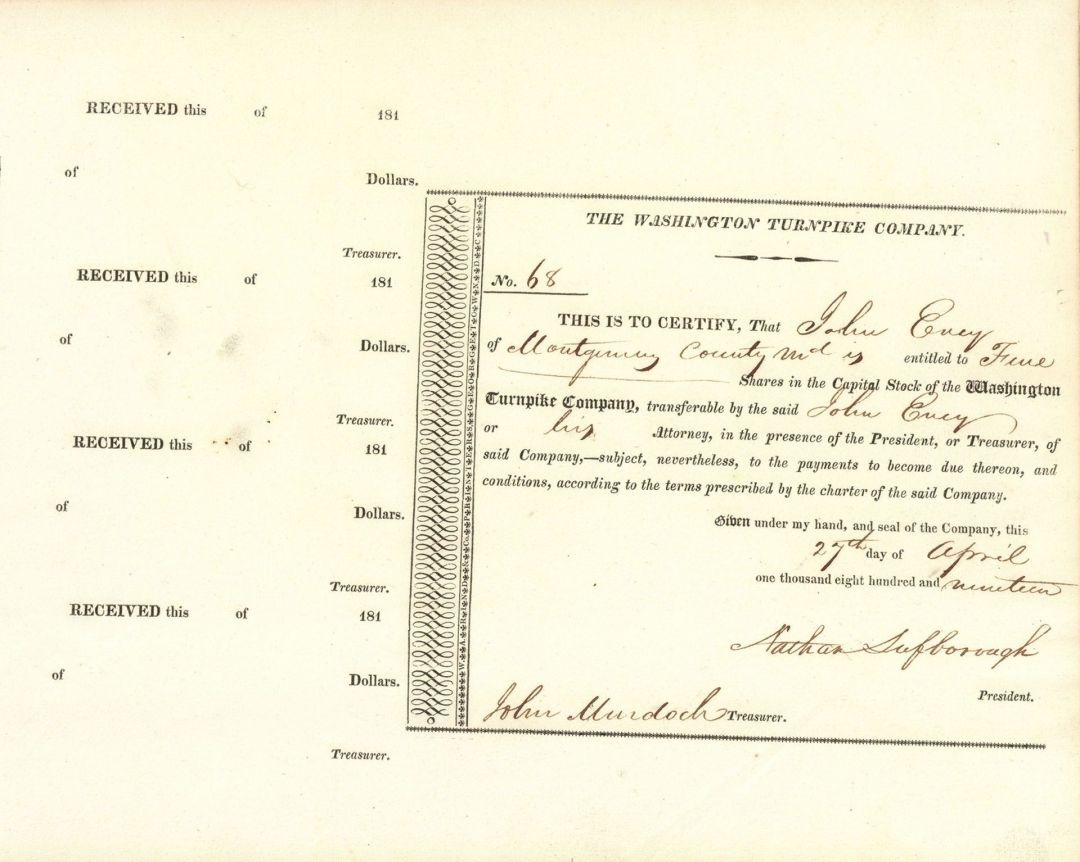 RECEIVED this of 181
of Dollars.
Treasurer.
RECEIVED this of 181
of Dollars.
Treasurer.
RECEIVED this of 181
of Dollars.
Treasurer.
RECEIVED this of 181
of Dollars.
Treasurer.
THE WASHINGTON TURNPIKE COMPANY.
No. 68
THIS IS TO CERTIFY, That John Evey
of Montgomery County Md is entitled to Five
Shares in the Capital Stock of the Washington
Turnpike Company, transferable by the said John Evey
or his Attorney, in the presence of the President, or Treasurer, of
said Company,—subject, nevertheless, to the payments to become due thereon, and
conditions, according to the terms prescribed by the charter of the said Company.
Given under my hand, and seal of the Company, this
27th day of April
one thousand eight hundred and nineteen
Nathan Lufborough
President.
John Murdoch Treasurer.